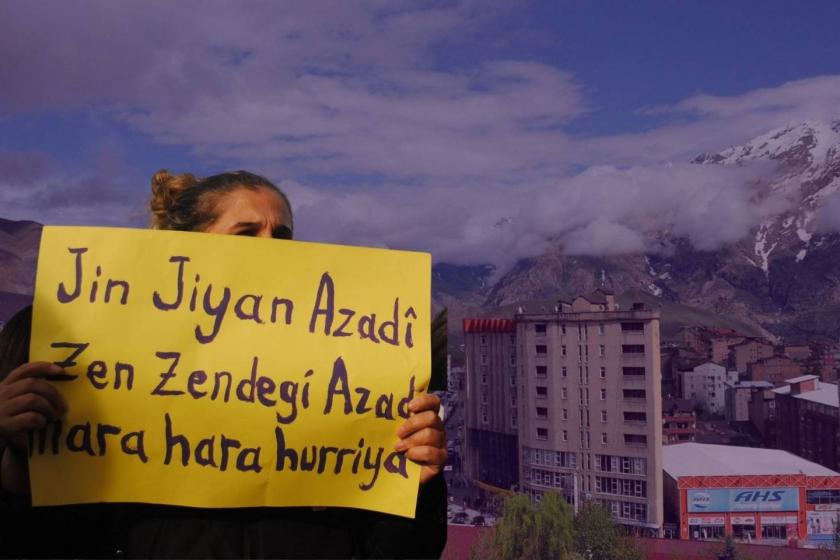 Jin Jiyan Azadî
Zen Zendegí Azadí
mara hara hurriya
AHS
AHS